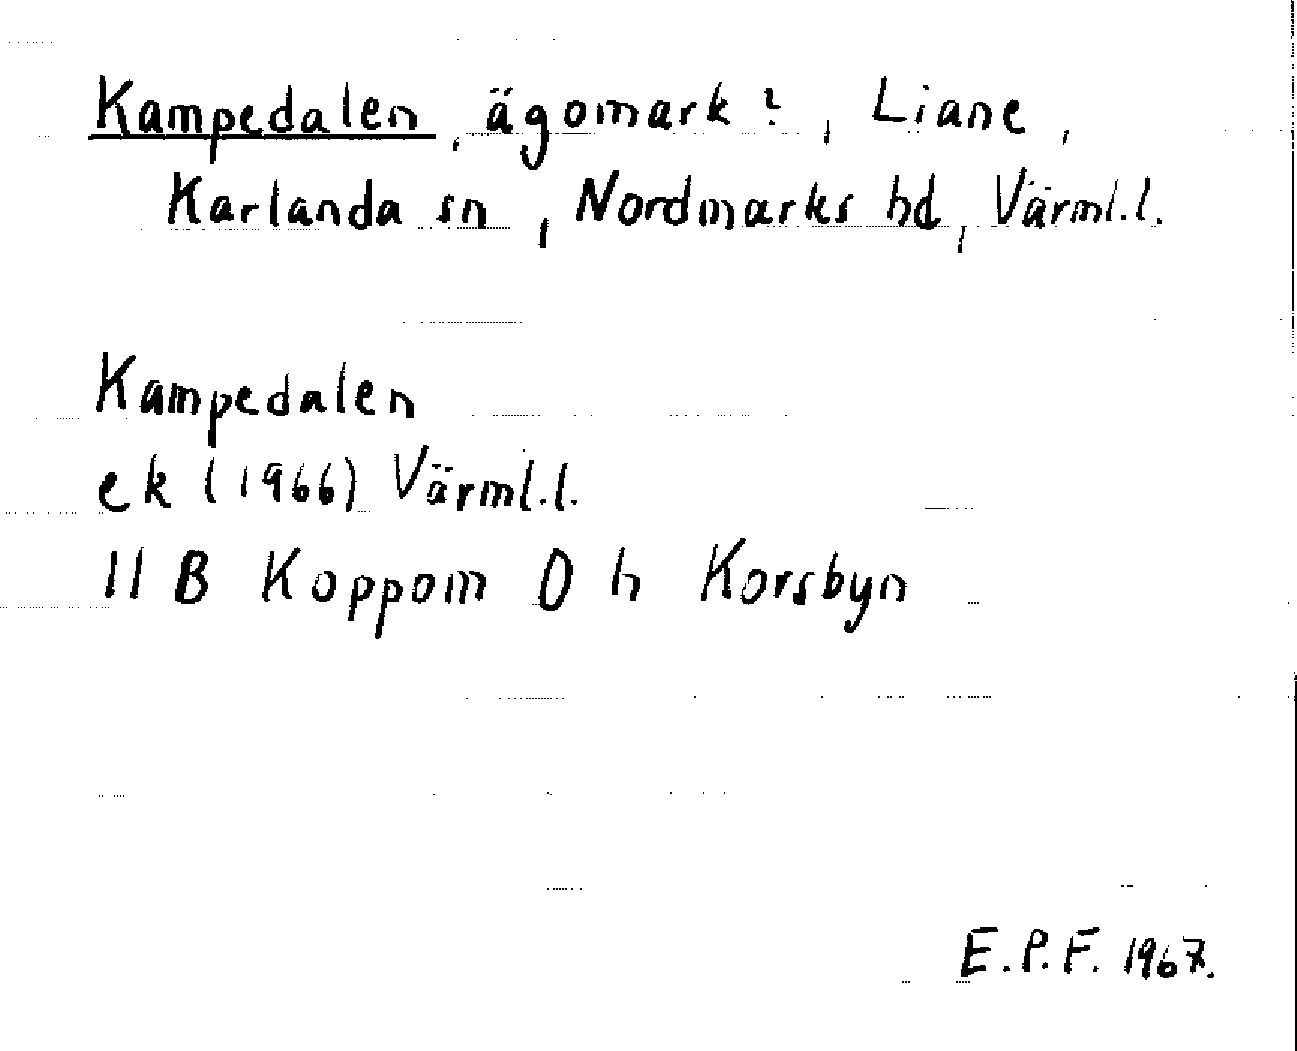 Kampedalen, ägomark?, Liane,
Karlanda sn, Nordmarks hd, Värml.l.
Kampedalen
ek (1966) Värml.l.
11 B Koppom 0 h Korsbyn
E.P.F. 1967.